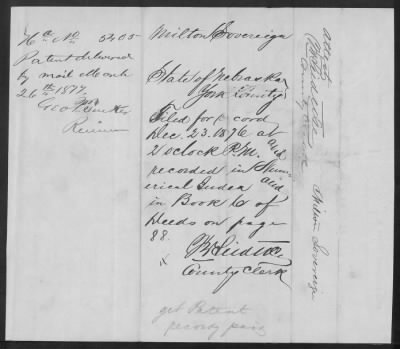 Ha No 5205
Patent delivered
by mail March
26th 1877.
Geo
Milton Sovereign
State of Nebraska
York County
Filed for cord
Dec. 23. 1876 at
2 o'clock P.M. and
recorded in Num
erical Index and
in Book 6 of
Deeds on page
88.
County Clerk
get Patent
record paid
Milton Sovereign